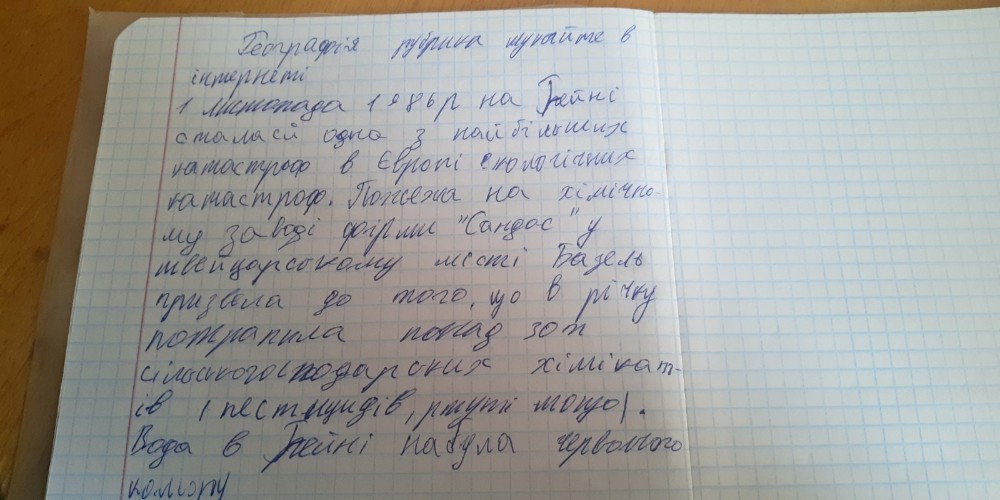 Географія рубрика шукайте в
інтернеті
1 листопада 1986р на Рейні
сталася одна з найбільших
катастроф в Європі екологічних
катастроф. Пожежа на хімічно-
му заводі фірми "Сандос" у
швейцарському місті Базель
призвела до того, що в річку
потрапила понад 30т
сільськогосподарських хімікат-
ів (пестицидів, ртуті тощо).
Вода в Рейні набула червоного
кольору